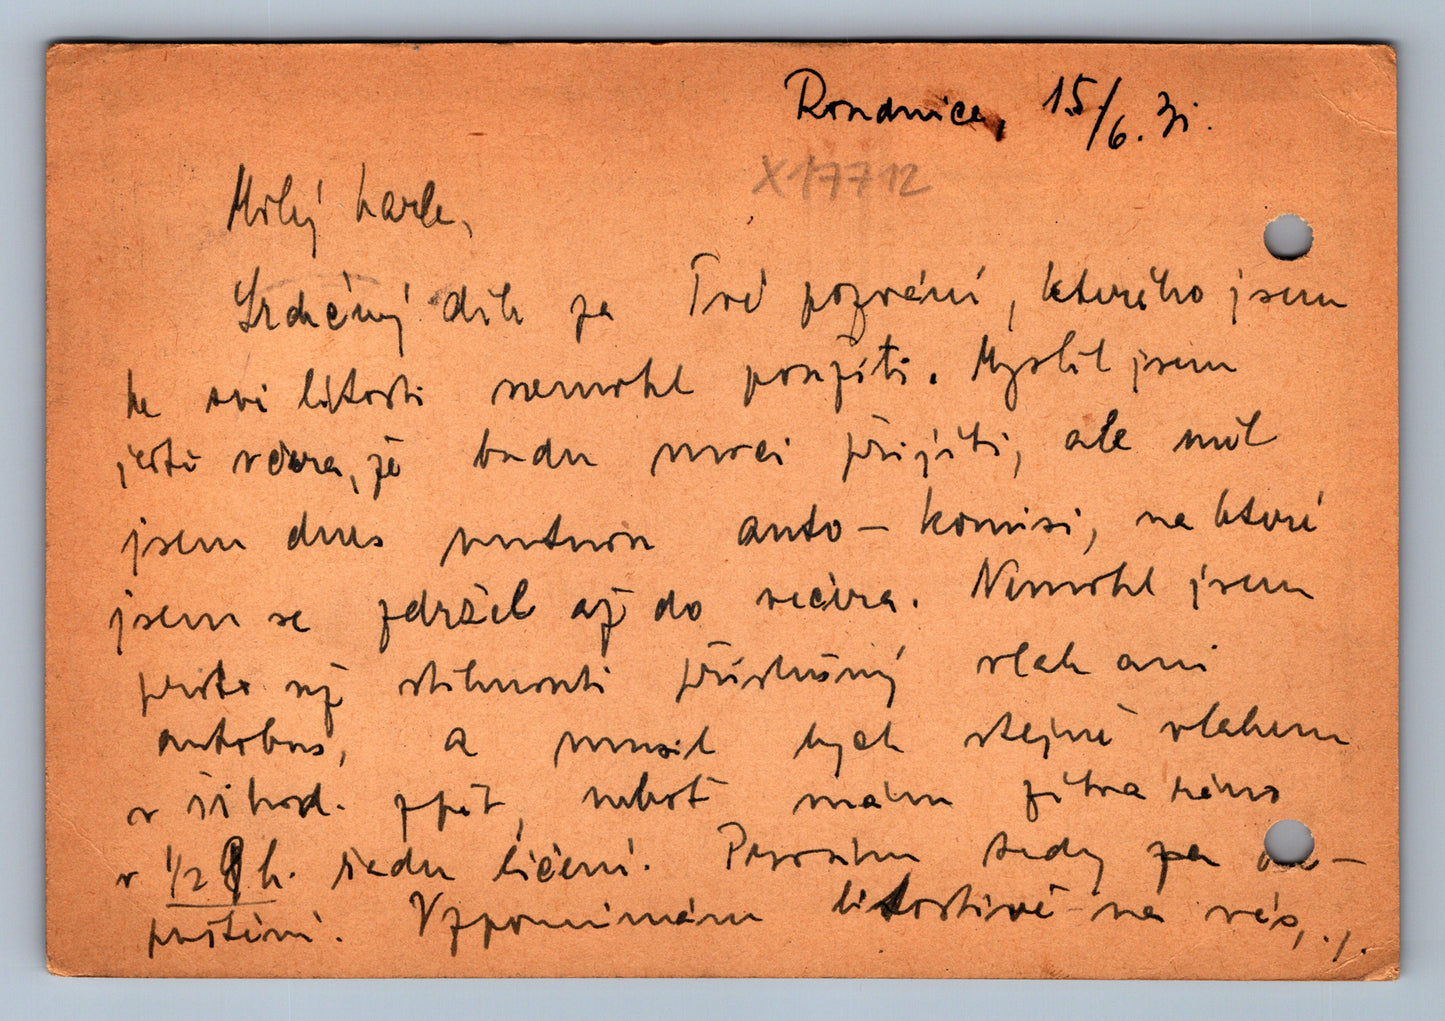 Roudnice, 15/6. 31.
X17712
Milý Karle,
Srdečný dík za Tvé pozvání, kterého jsem
ke své lítosti nemohl použíti. Myslil jsem
ještě včera, že budu moci přijíti, ale měl
jsem dnes nutnou auto-komisi, na které
jsem se zdržel až do večera. Nemohl jsem
proto již stihnouti příslušný vlak ani
autobus, a musil bych stejně vlakem
v 5 hod. zpět, neboť mám zítra ráno
v 1/2 9 h. řadu líčení. Prosím tedy za
puštění. Vzpomínám lítostivě na vás, ./.